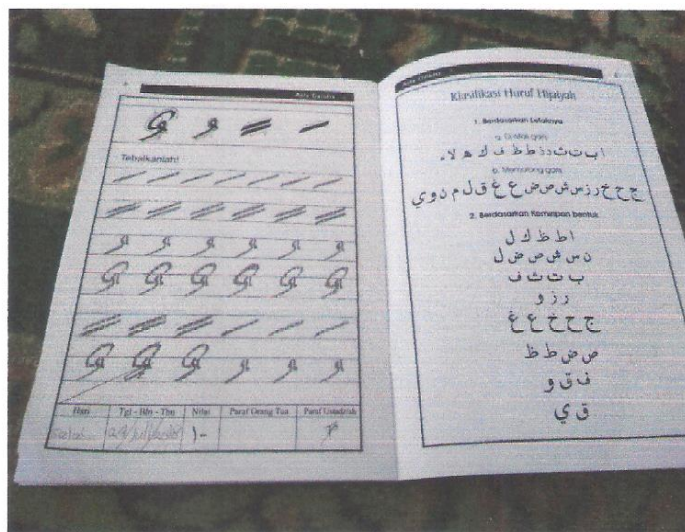 Tebalkanlah!
Hari Tgl - Bln - Thn Nilai Paraf Orang Tua Paraf Ustadzah
Klasifikasi Huruf Hijaiyah
1. Berdasarkan Letaknya
a. Di atas garis
ا ب ت ث د ذ ط ظ ف ك ه لا ء
b. Memotong garis
ج ح خ ر ز س ش ص ض ع غ ق ل م ن و ي
2. Berdasarkan Kemiripan bentuk
ا ط ظ ك ل
ن س ش ص ض ل
ب ت ث ف
ر ز و
ج ح خ ع غ
ص ض ط ظ
ف ق و
ق ي